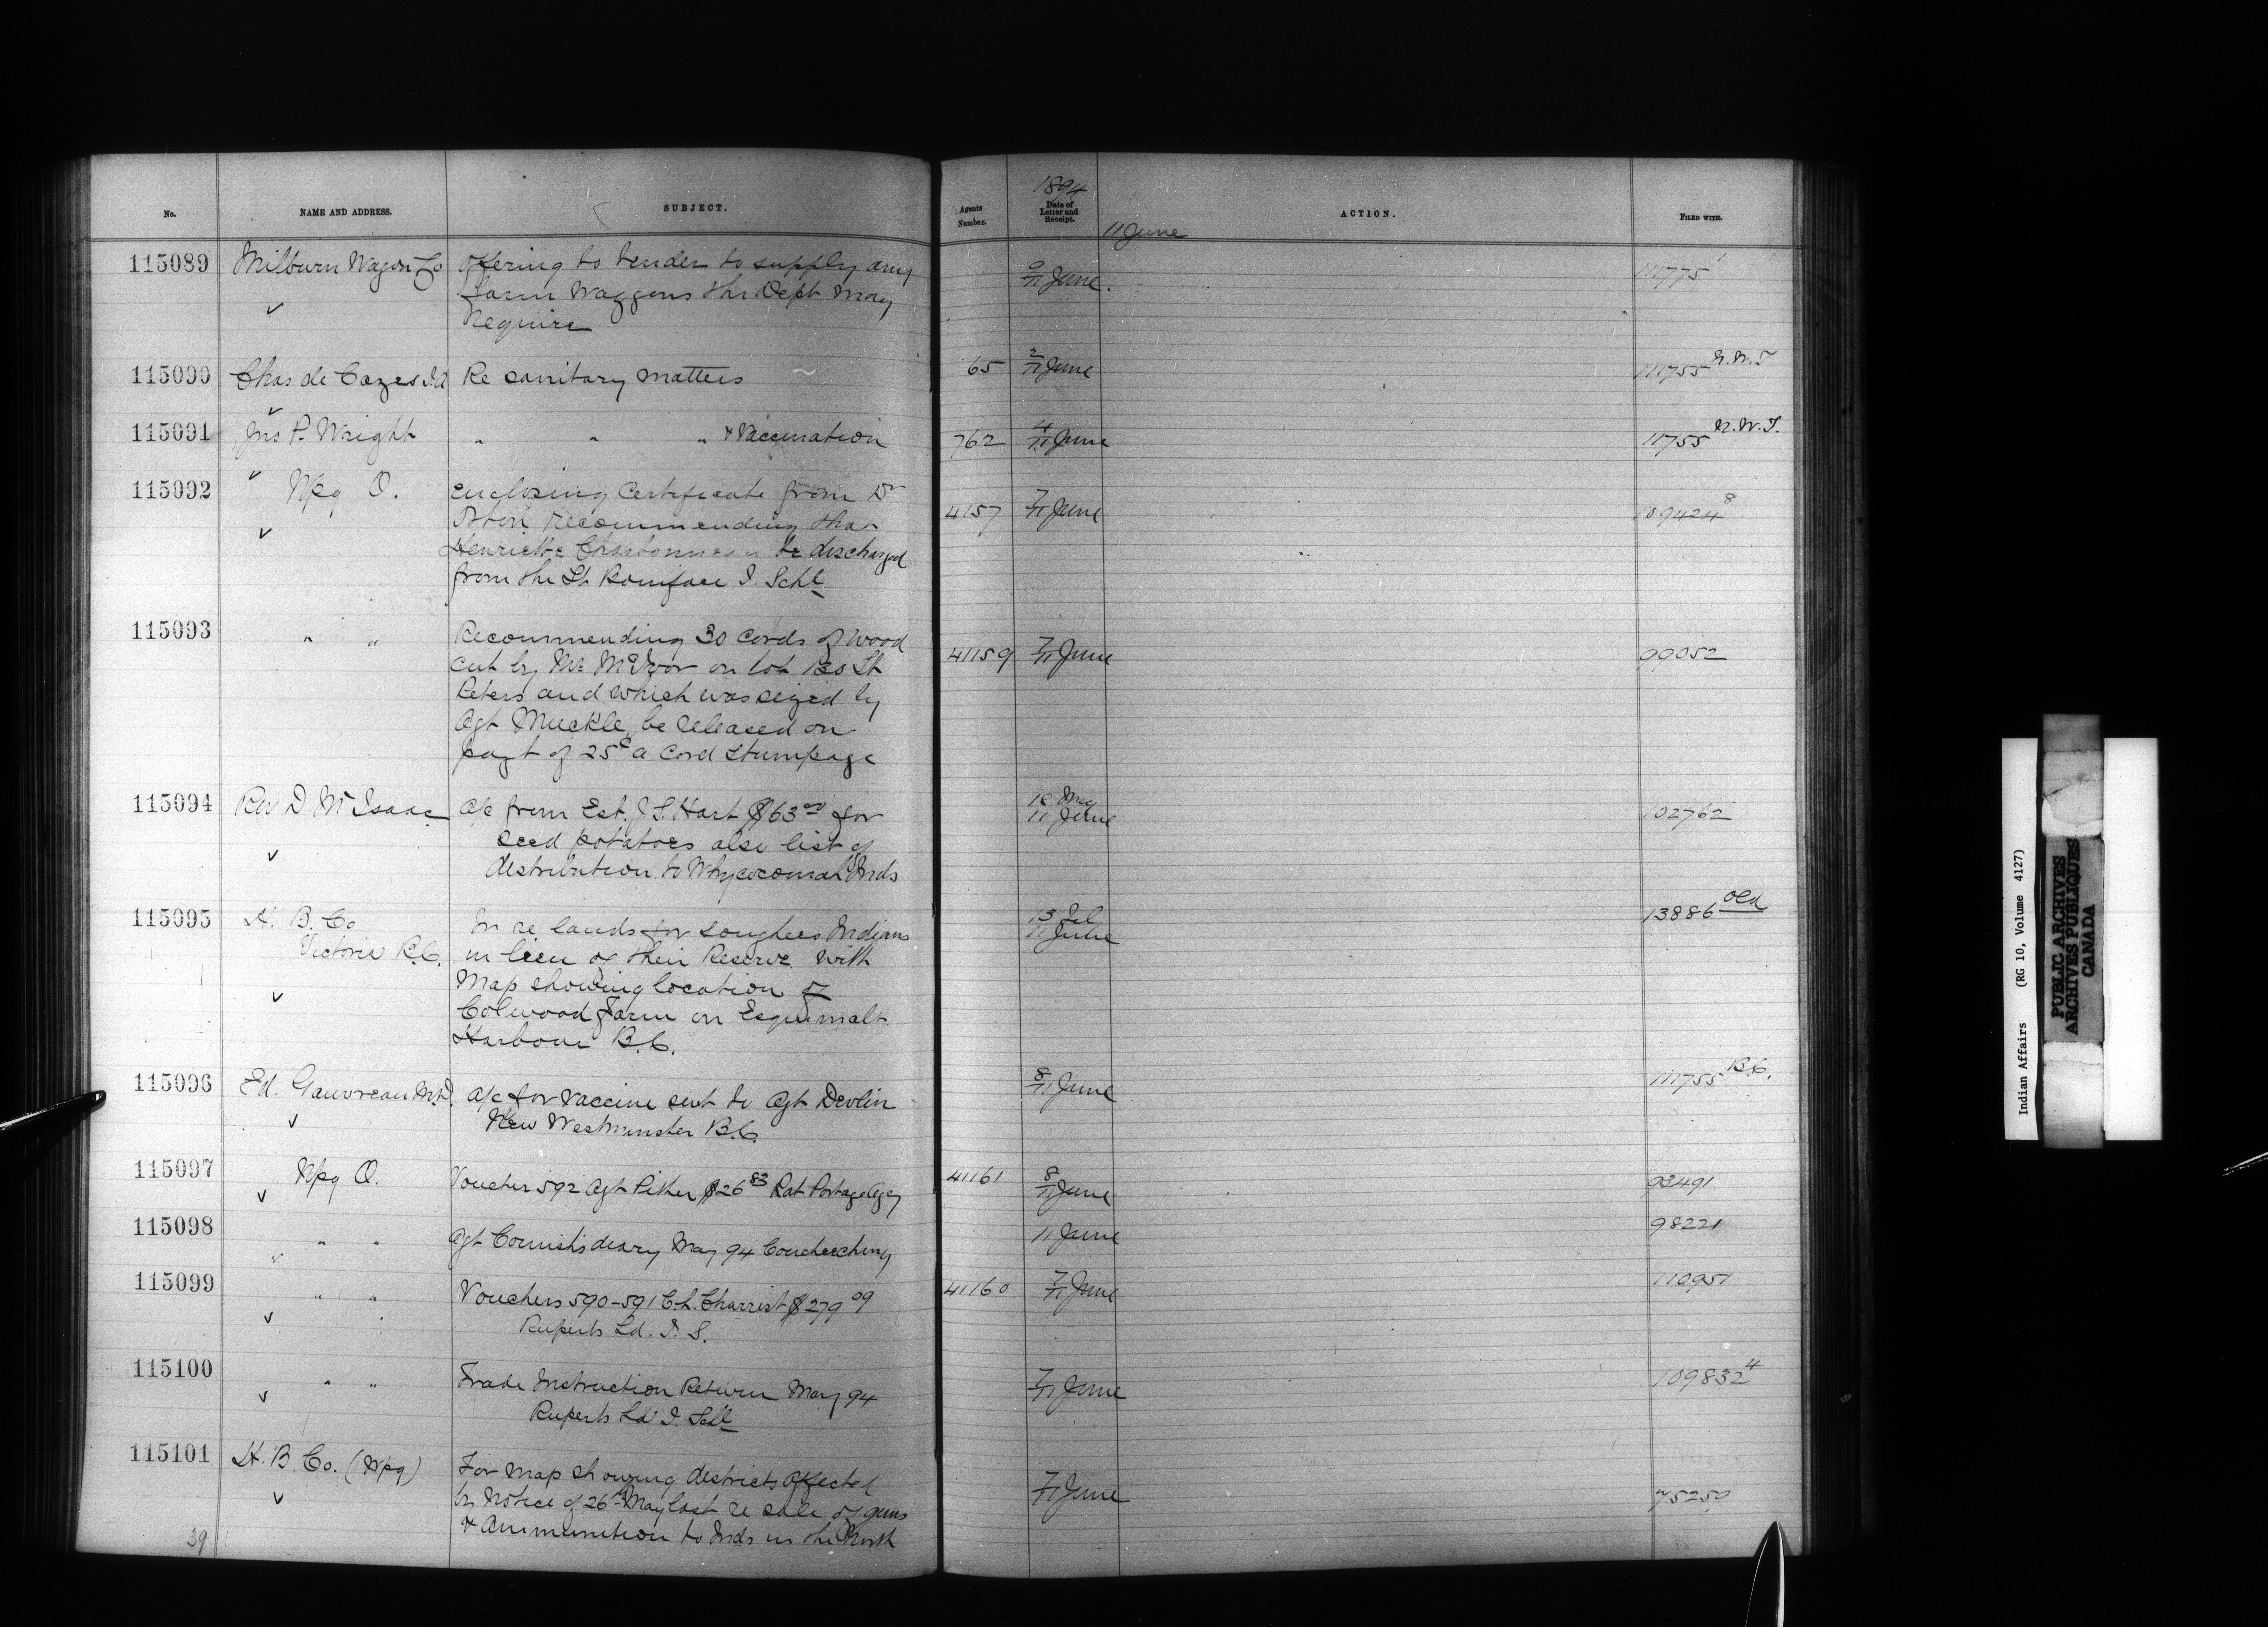 No. NAME AND ADDRESS. SUBJECT. Agents Number. 1894 Date of Letter and Receipt. ACTION. FILED WITH.
11 June
115089 Milburn Wagon Co Offering to tender to supply any 9/11 June. 111775 1
farm Waggons the Dept may
require
115090 Chas de Cazes I.A Re sanitary matters 65 2/11 June 111755 N.W.T
115091 Jno P. Wright " " " & Vaccination 762 4/11 June 11755 N.W.T.
115092 " Wpg O. Enclosing Certificate from Dr 4157 7/11 June 109424 8
recommending that
Henriette Charbonneau be discharged
from the St Boniface I. Schl
115093 " " Recommending 30 cords of wood 41159 7/11 June 99052
cut by Mr McIvor on lot 130 St
Peters and which was seized by
Agt Muckle, be released on
payt of 25c a cord stumpage
115094 Rev D McIsaac a/c from Est. J S. Hart $63 00 for 18 May 11 June 102762
seed potatoes also list of
distribution to Whycocomah Inds
115095 H. B. Co In re lands for Songhees Indians 13 Feb 11 June 13886 Old
Victoria B.C. in lieu of their Reserve with
Map showing location of
Colwood Farm on Esquimalt
Harbour B.C.
115096 Ed. Gauvreau M.D. a/c for vaccine sent to Agt Devlin 8/11 June 111755 B.C.
New Westminster B.C.
115097 Wpg O. Voucher 592 Agt Pither $26 83 Rat Portage Agcy 41161 8/11 June 93491
115098 " " Agt Cornish's diary May 94 Couchiching 11 June 98221
115099 " " Vouchers 590-591 C.L. $279 09 41160 7/11 June 110951
Ruperts Ld. I. S.
115100 " " Trade Instruction Return May 94 7/11 June 109832 4
Ruperts Ld I. Schl
115101 H. B. Co. (Wpg) For map showing districts affected 7/11 June 75250
by Notice of 26th May last re sale of guns
& Ammunition to Inds in the North
39
Indian Affairs (RG 10, Volume 4127)
PUBLIC ARCHIVES
ARCHIVES PUBLIQUES
CANADA